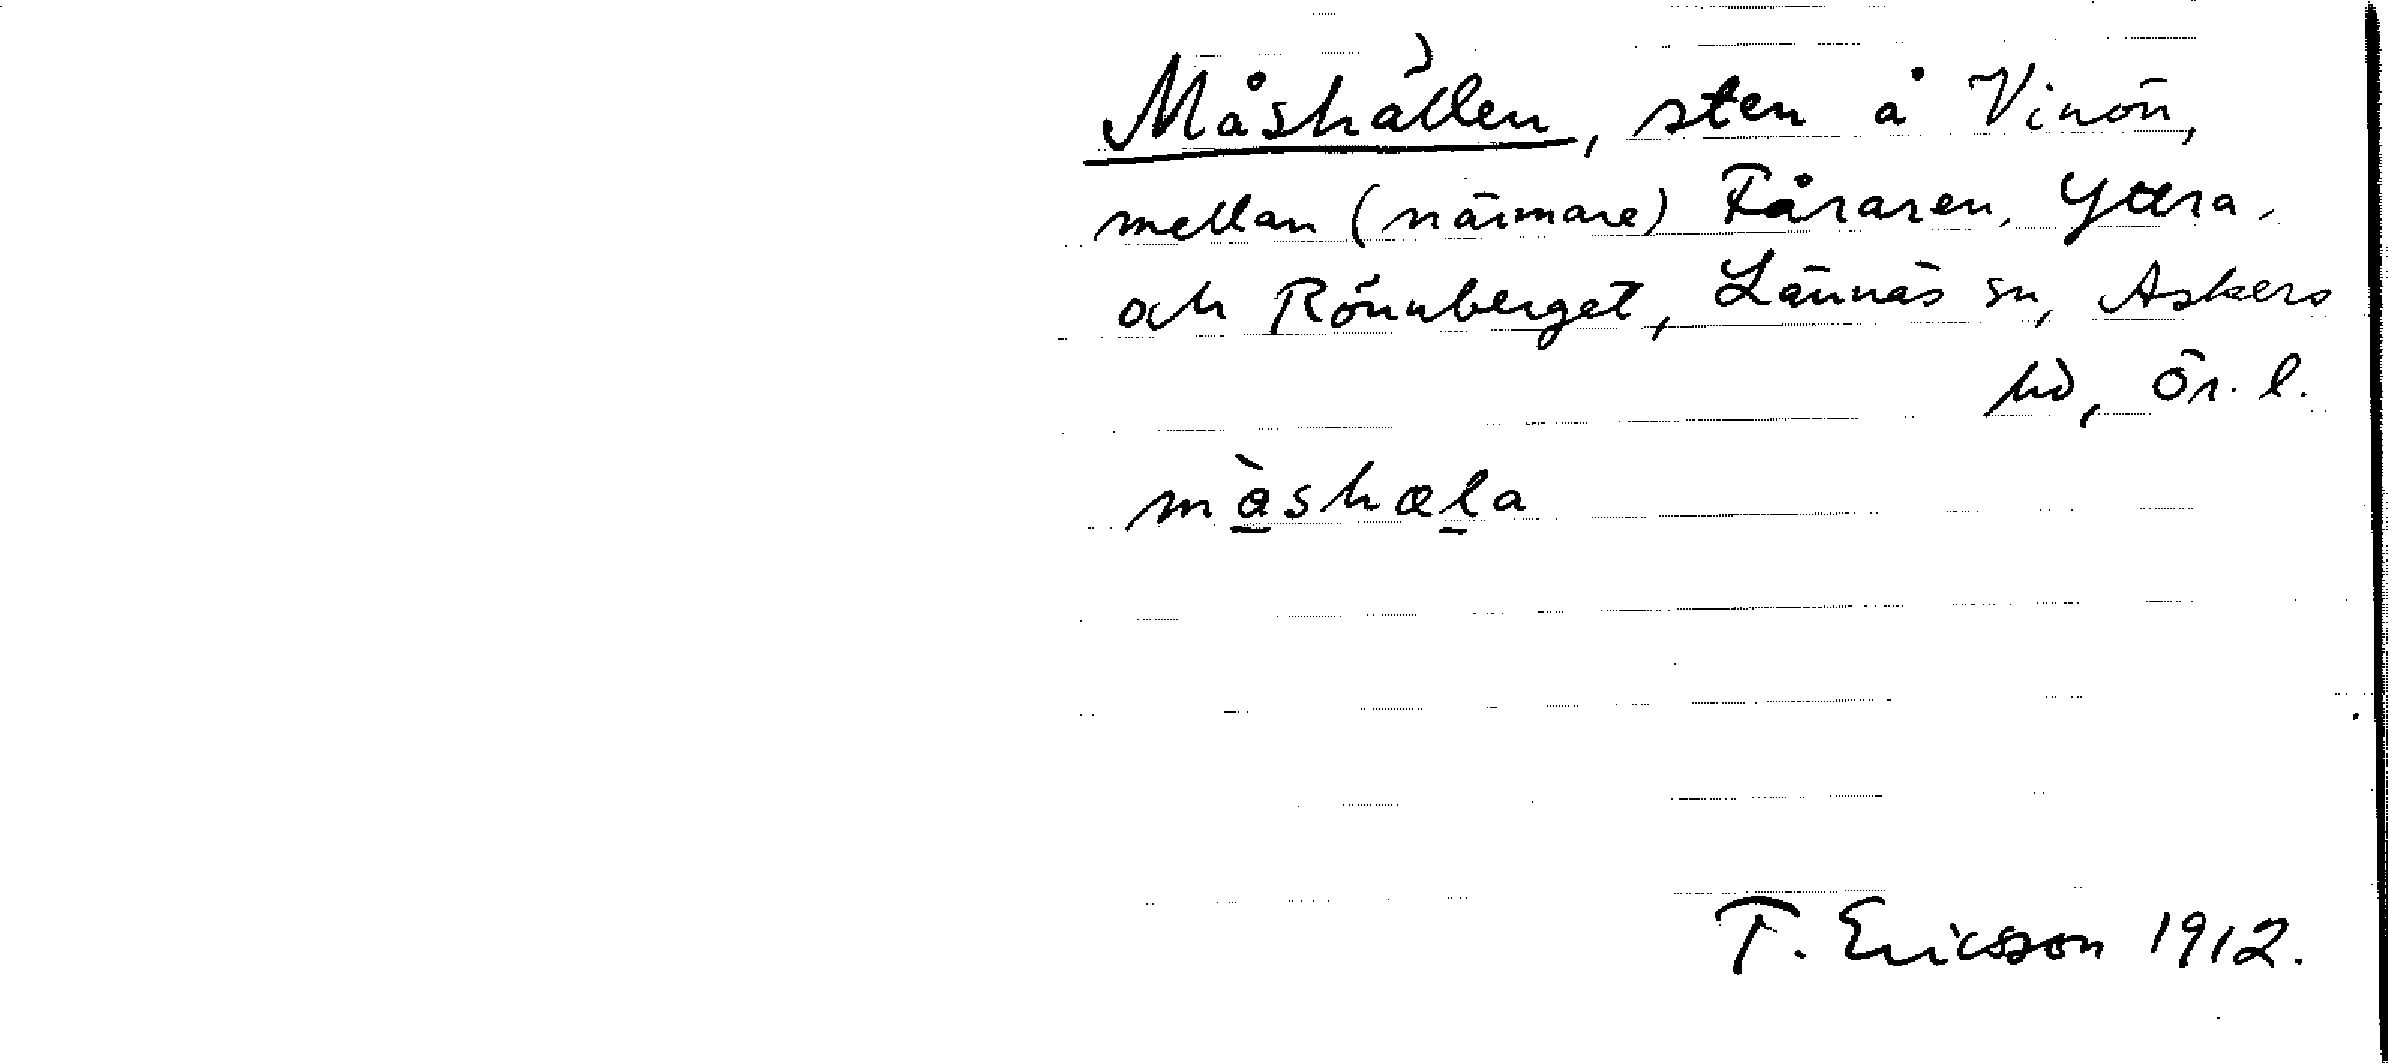 Måshällen, sten å Vinön,
mellan (närmare) Fåraren, Yttra,
och Rönnberget, Lännäs sn, Askers
hd, Ör. l.
må̀shæla
F. Ericsson 1912.